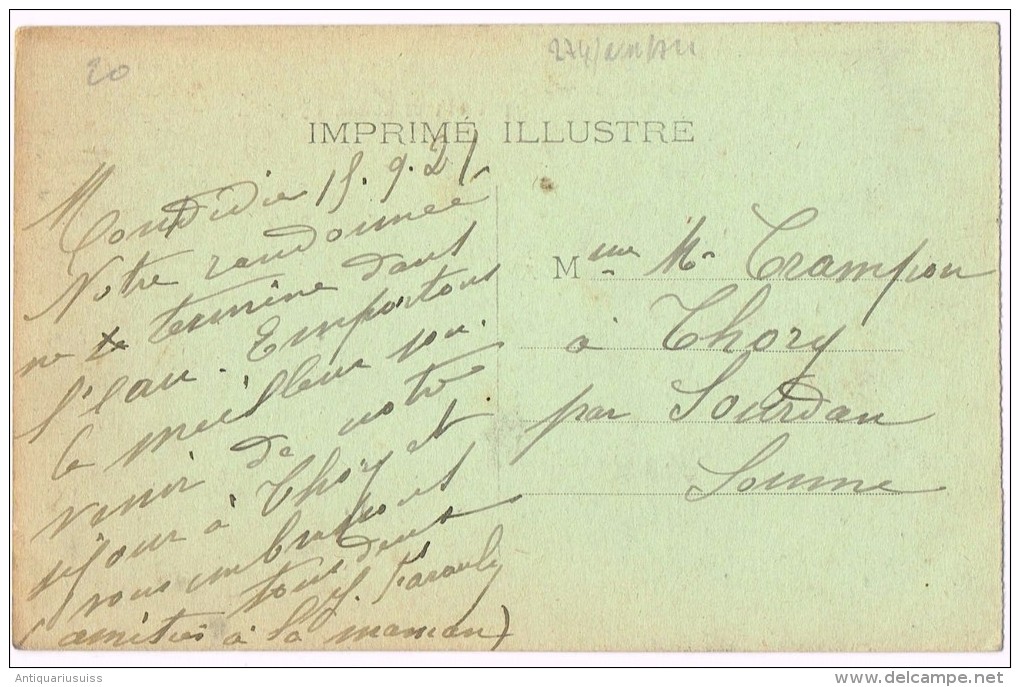 20
IMPRIMÉ ILLUSTRÉ
Montdidier 15.9.21
Notre randonneé
se termine dans
l'eau. Emportons
le meilleur sou-
venir de notre
séjour à Thory et
vous embrassons
tous deux
(amitiés à la maman)
Mme Mce Trampon
à Thory
par Sourdon
Somme
Antiquariusuiss
www.delcampe.net